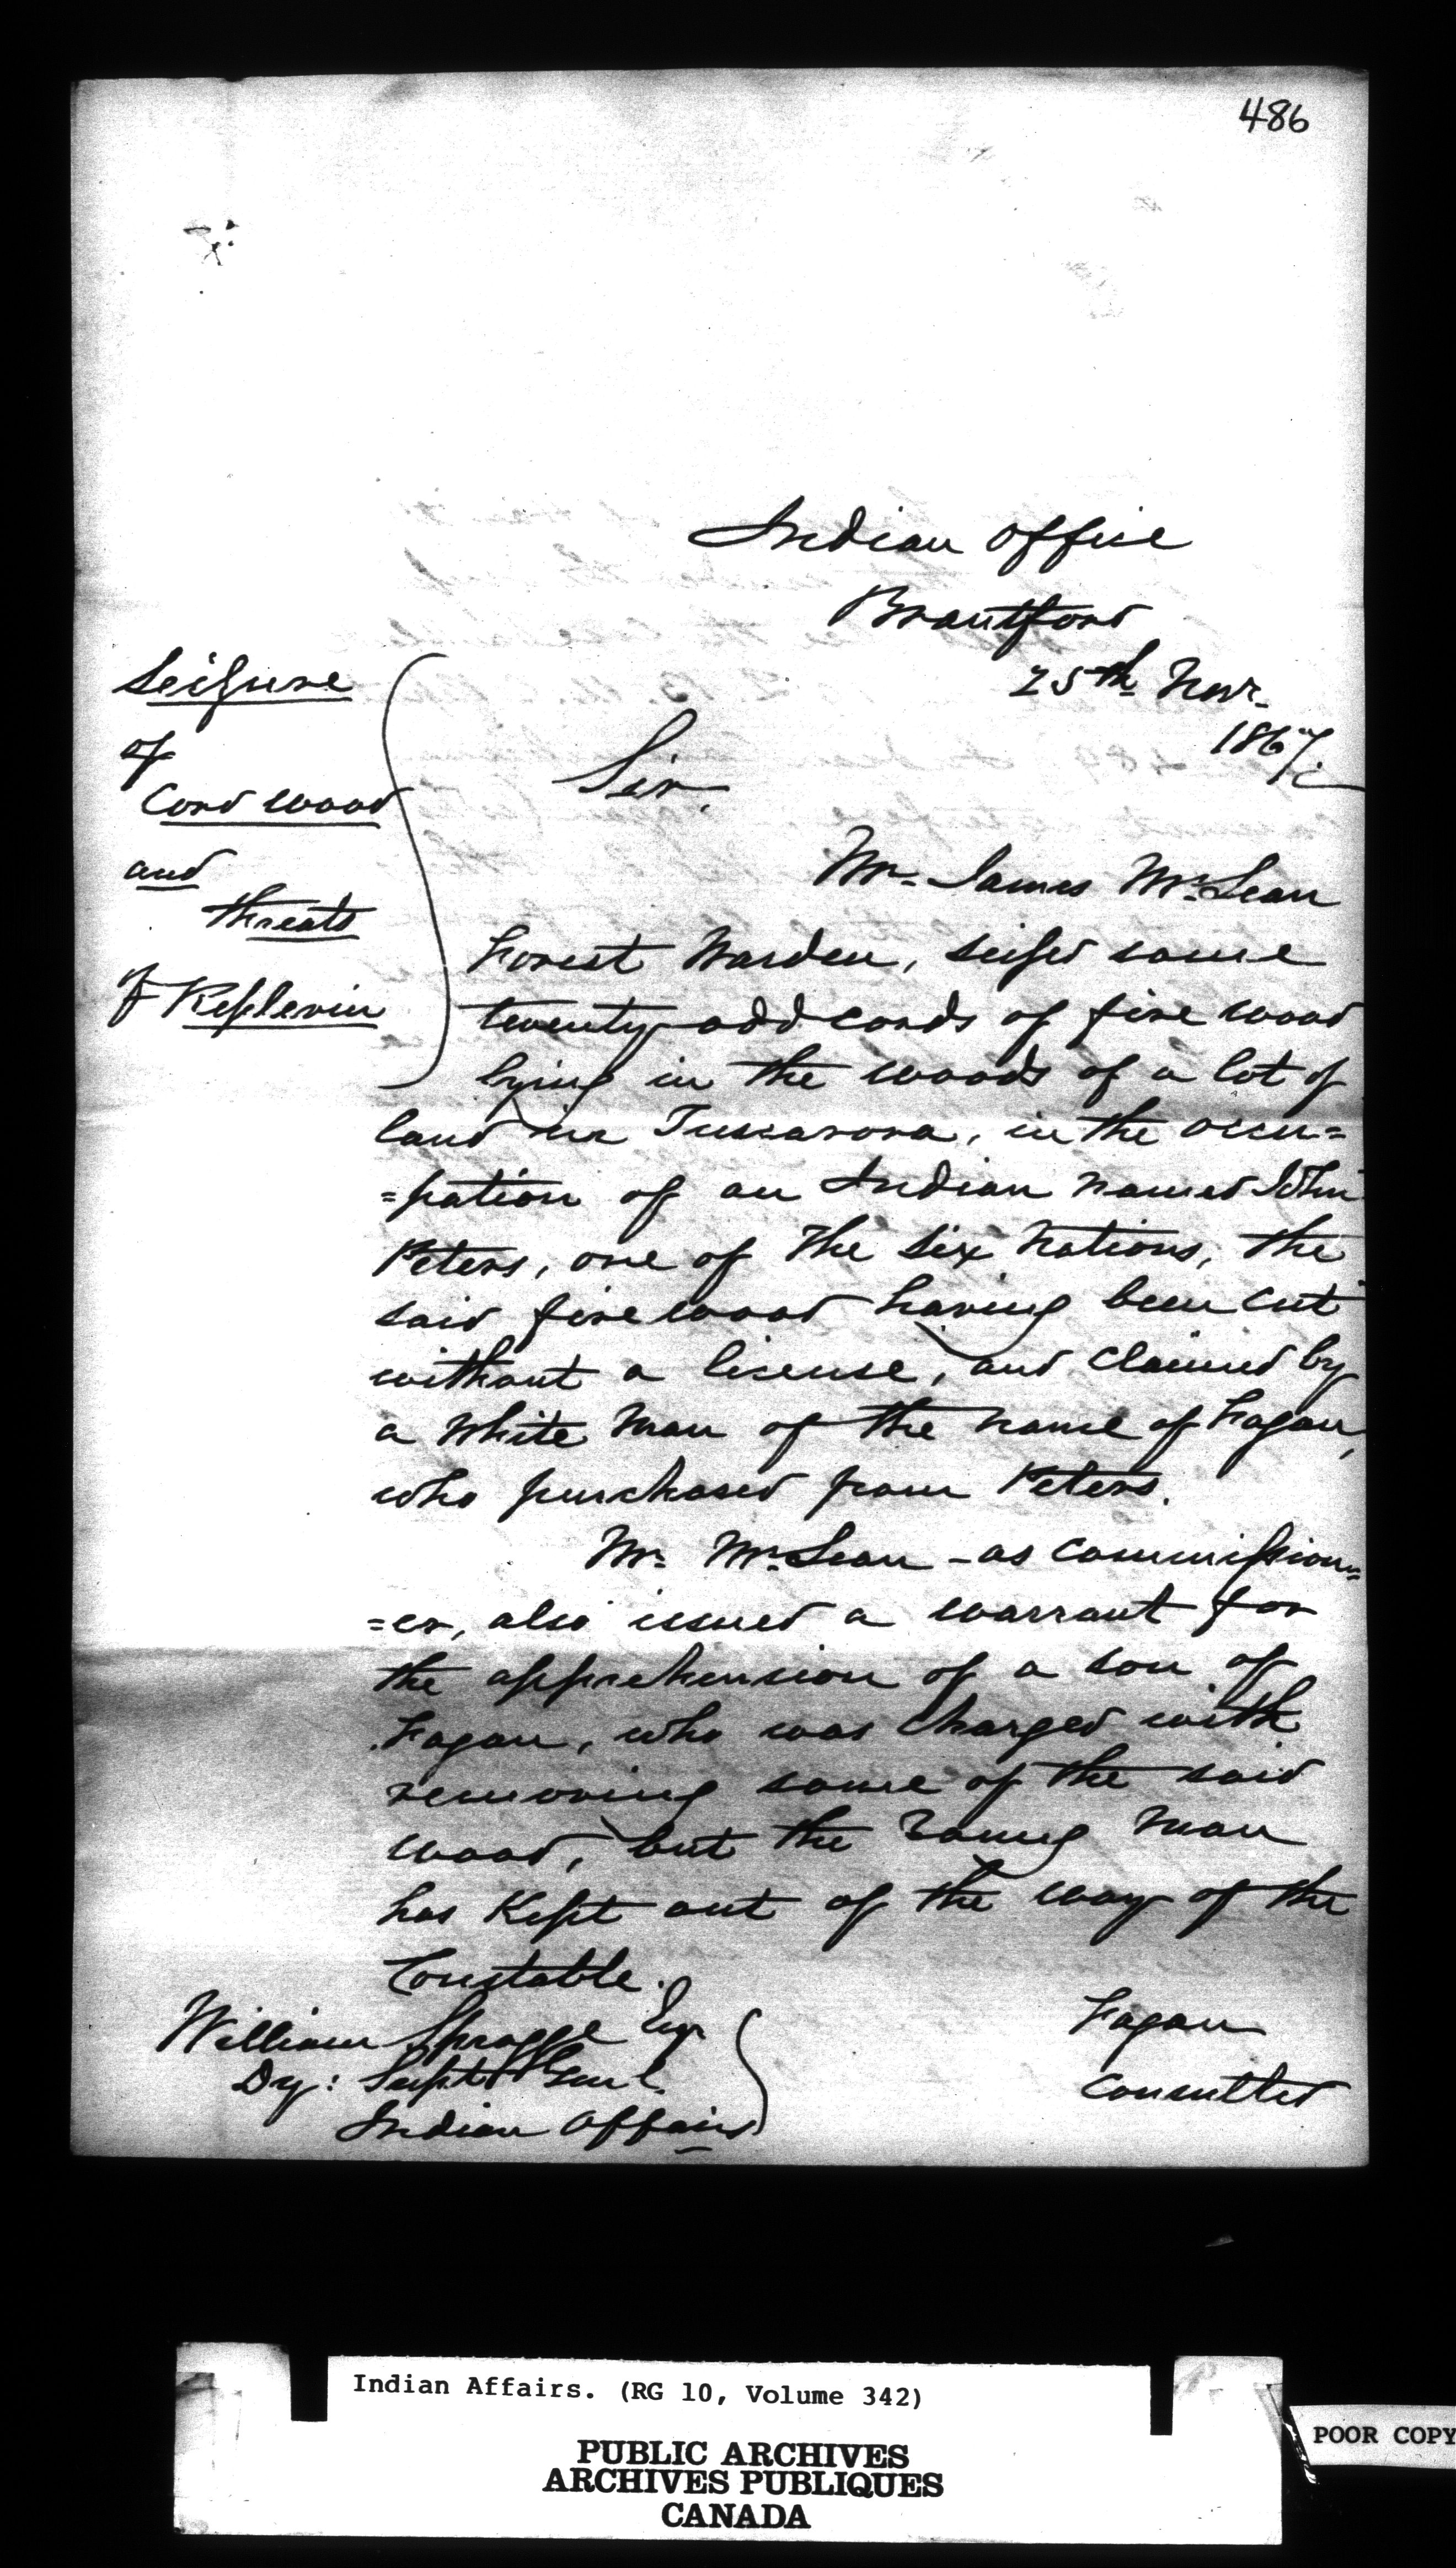 486
Indian Office
Brantford
25th Novr.
1867.
Seizure
of
Cord wood
and
threats
of Replevin
Sir,
Mr. James McLean
Forest Warden, seized some
twenty odd cords of fire wood
lying in the woods of a lot of
land in Tuscarora, in the occu=
=pation of an Indian named John
Peters, one of the Six Nations, the
said firewood having been cut
without a license, and claimed by
a white man of the name of Fagan,
who purchased from Peters.
Mr. McLean - as commission=
=er, also issued a warrant for
the apprehension of a son of
Fagan, who was charged with
removing some of the said
wood, but the young man
has kept out of the way of the
Constable.
Fagan
consulted
William Spragge Esqr
Dy: Supt Genl.
Indian Affairs
Indian Affairs. (RG 10, Volume 342)
PUBLIC ARCHIVES
ARCHIVES PUBLIQUES
CANADA
POOR COPY